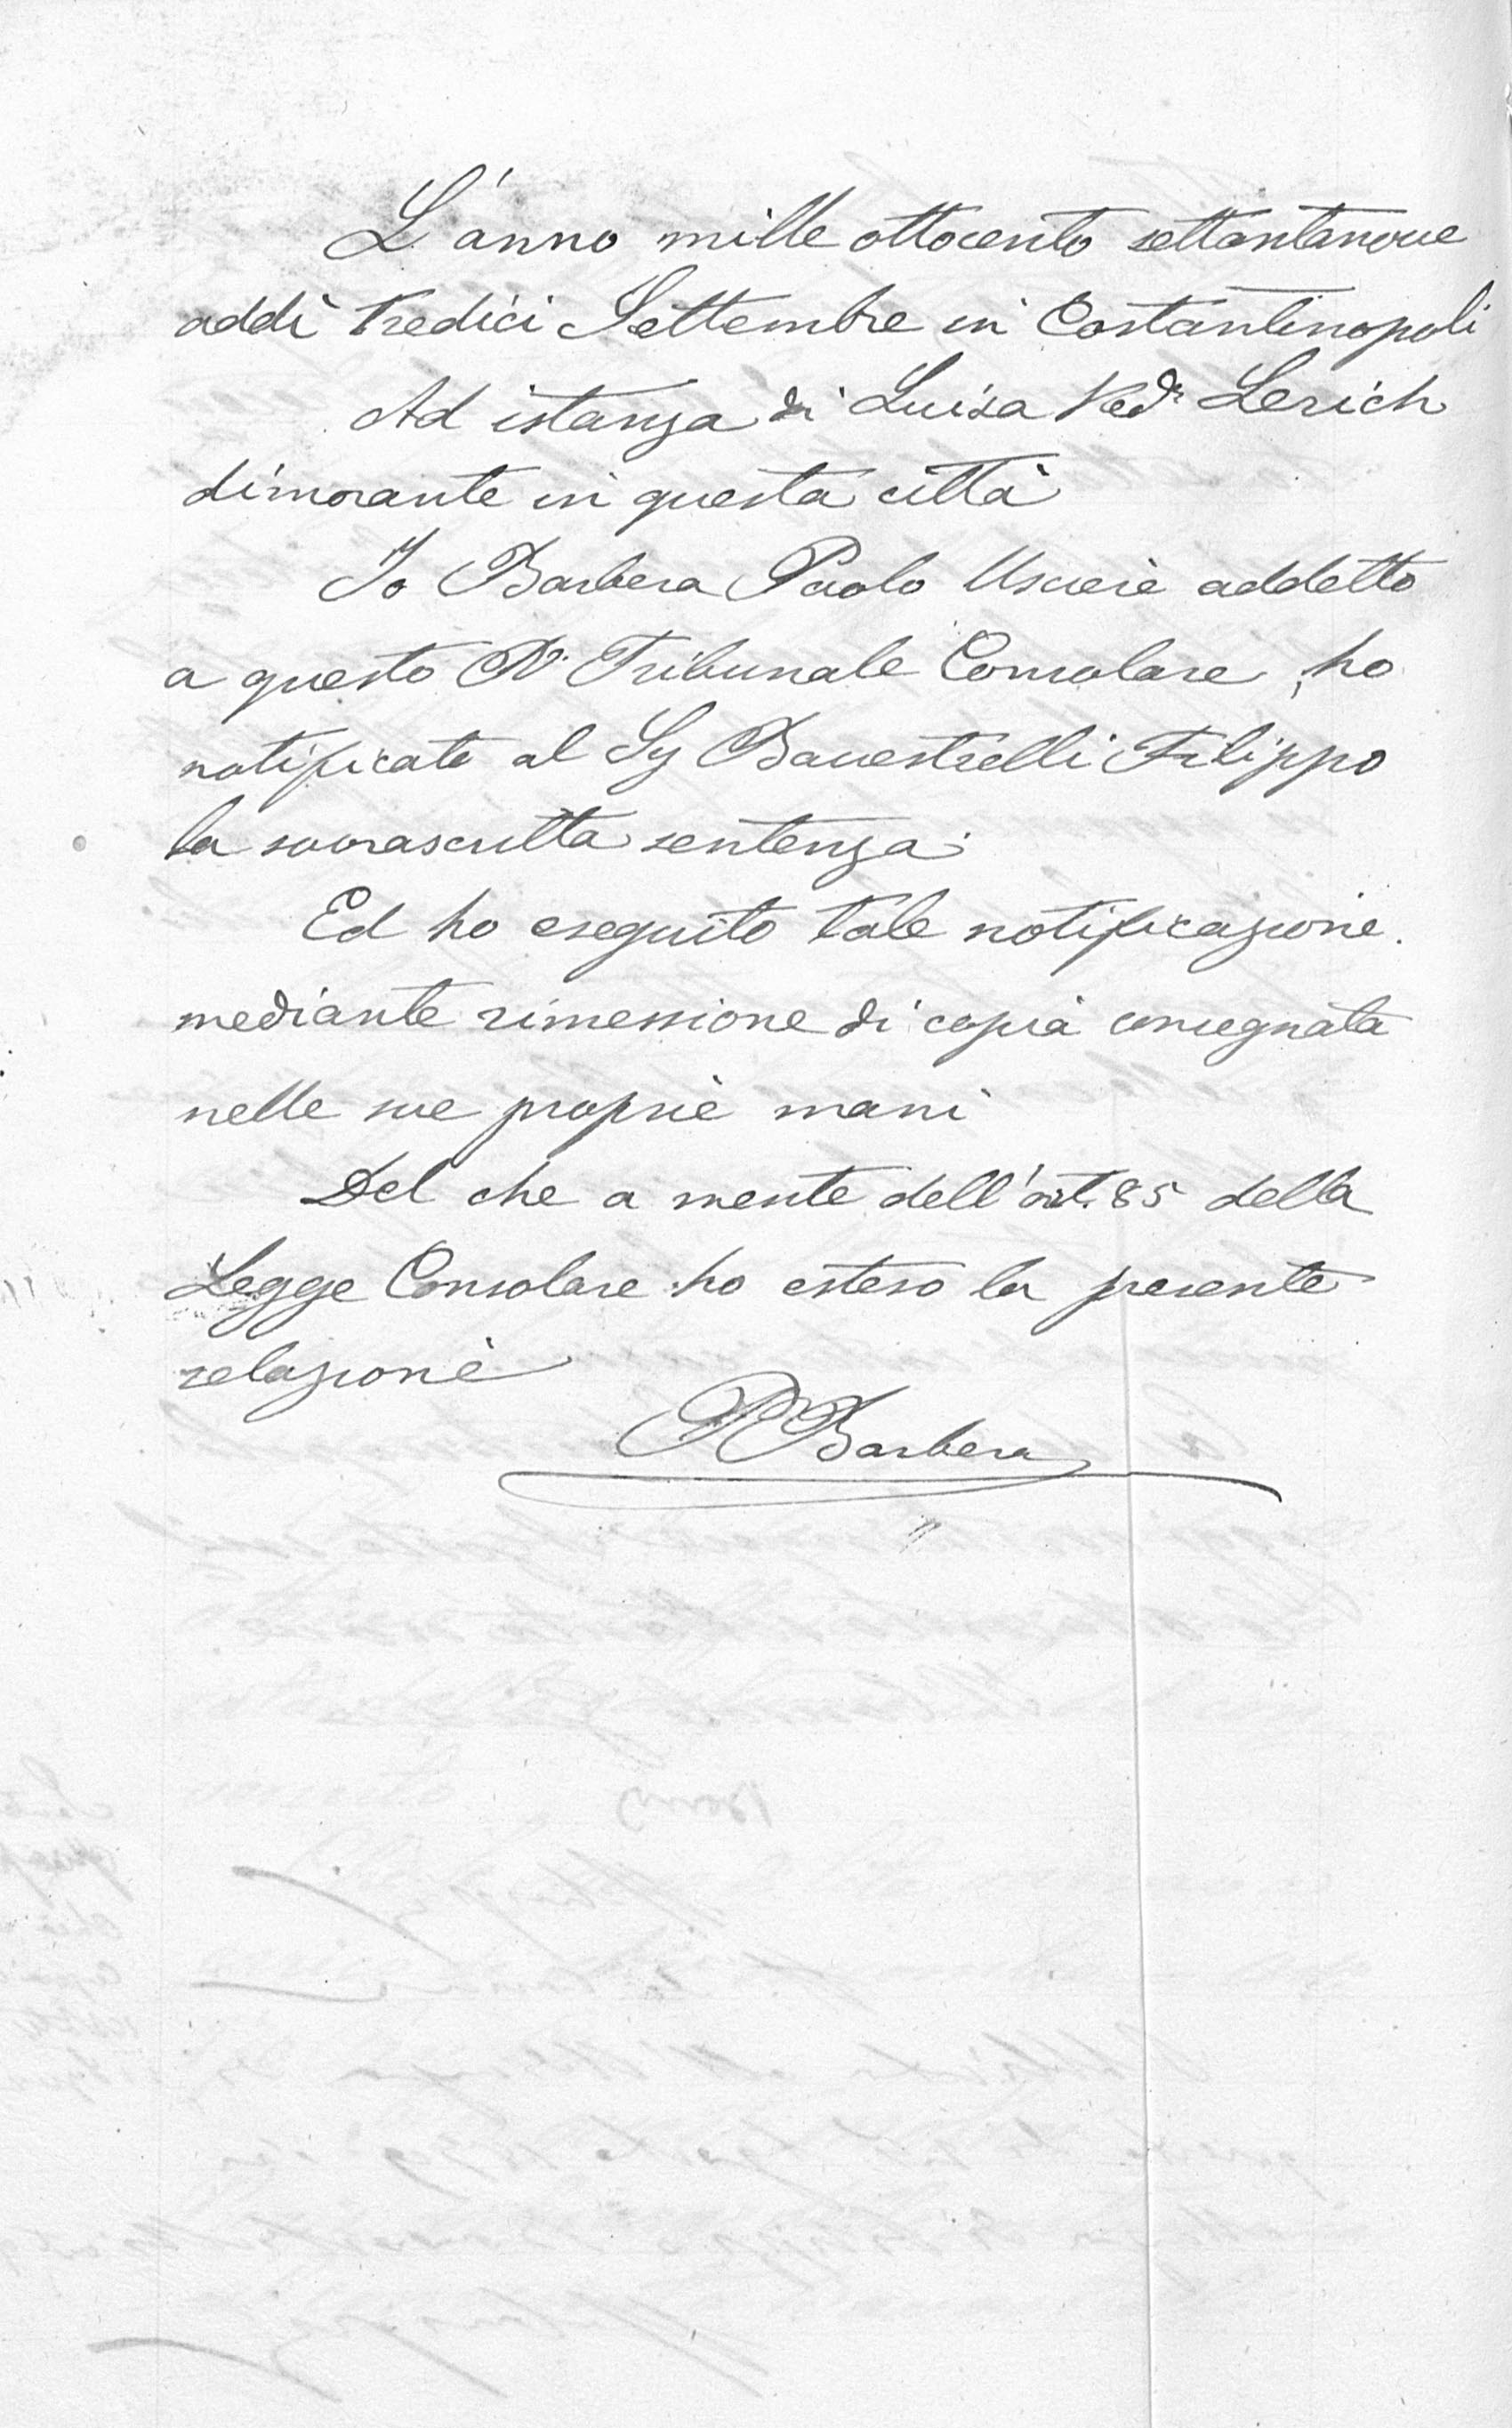 L'anno mille ottocento settantanove
addì tredici Settembre in Costantinopoli
Ad istanza di Luisa Ved.a Lerich
dimorante in questa città
Io Barbera Paolo Usciere addetto
a questo R. Tribunale Consolare, ho
notificato al Sig Bavestrelli Filippo
la sovrascritta sentenza.
Ed ho eseguito tale notificazione
mediante rimessione di copia consegnata
nelle sue proprie mani
Del che a mente dell'art. 85 della
Legge Consolare ho esteso la presente
relazione
P Barbera